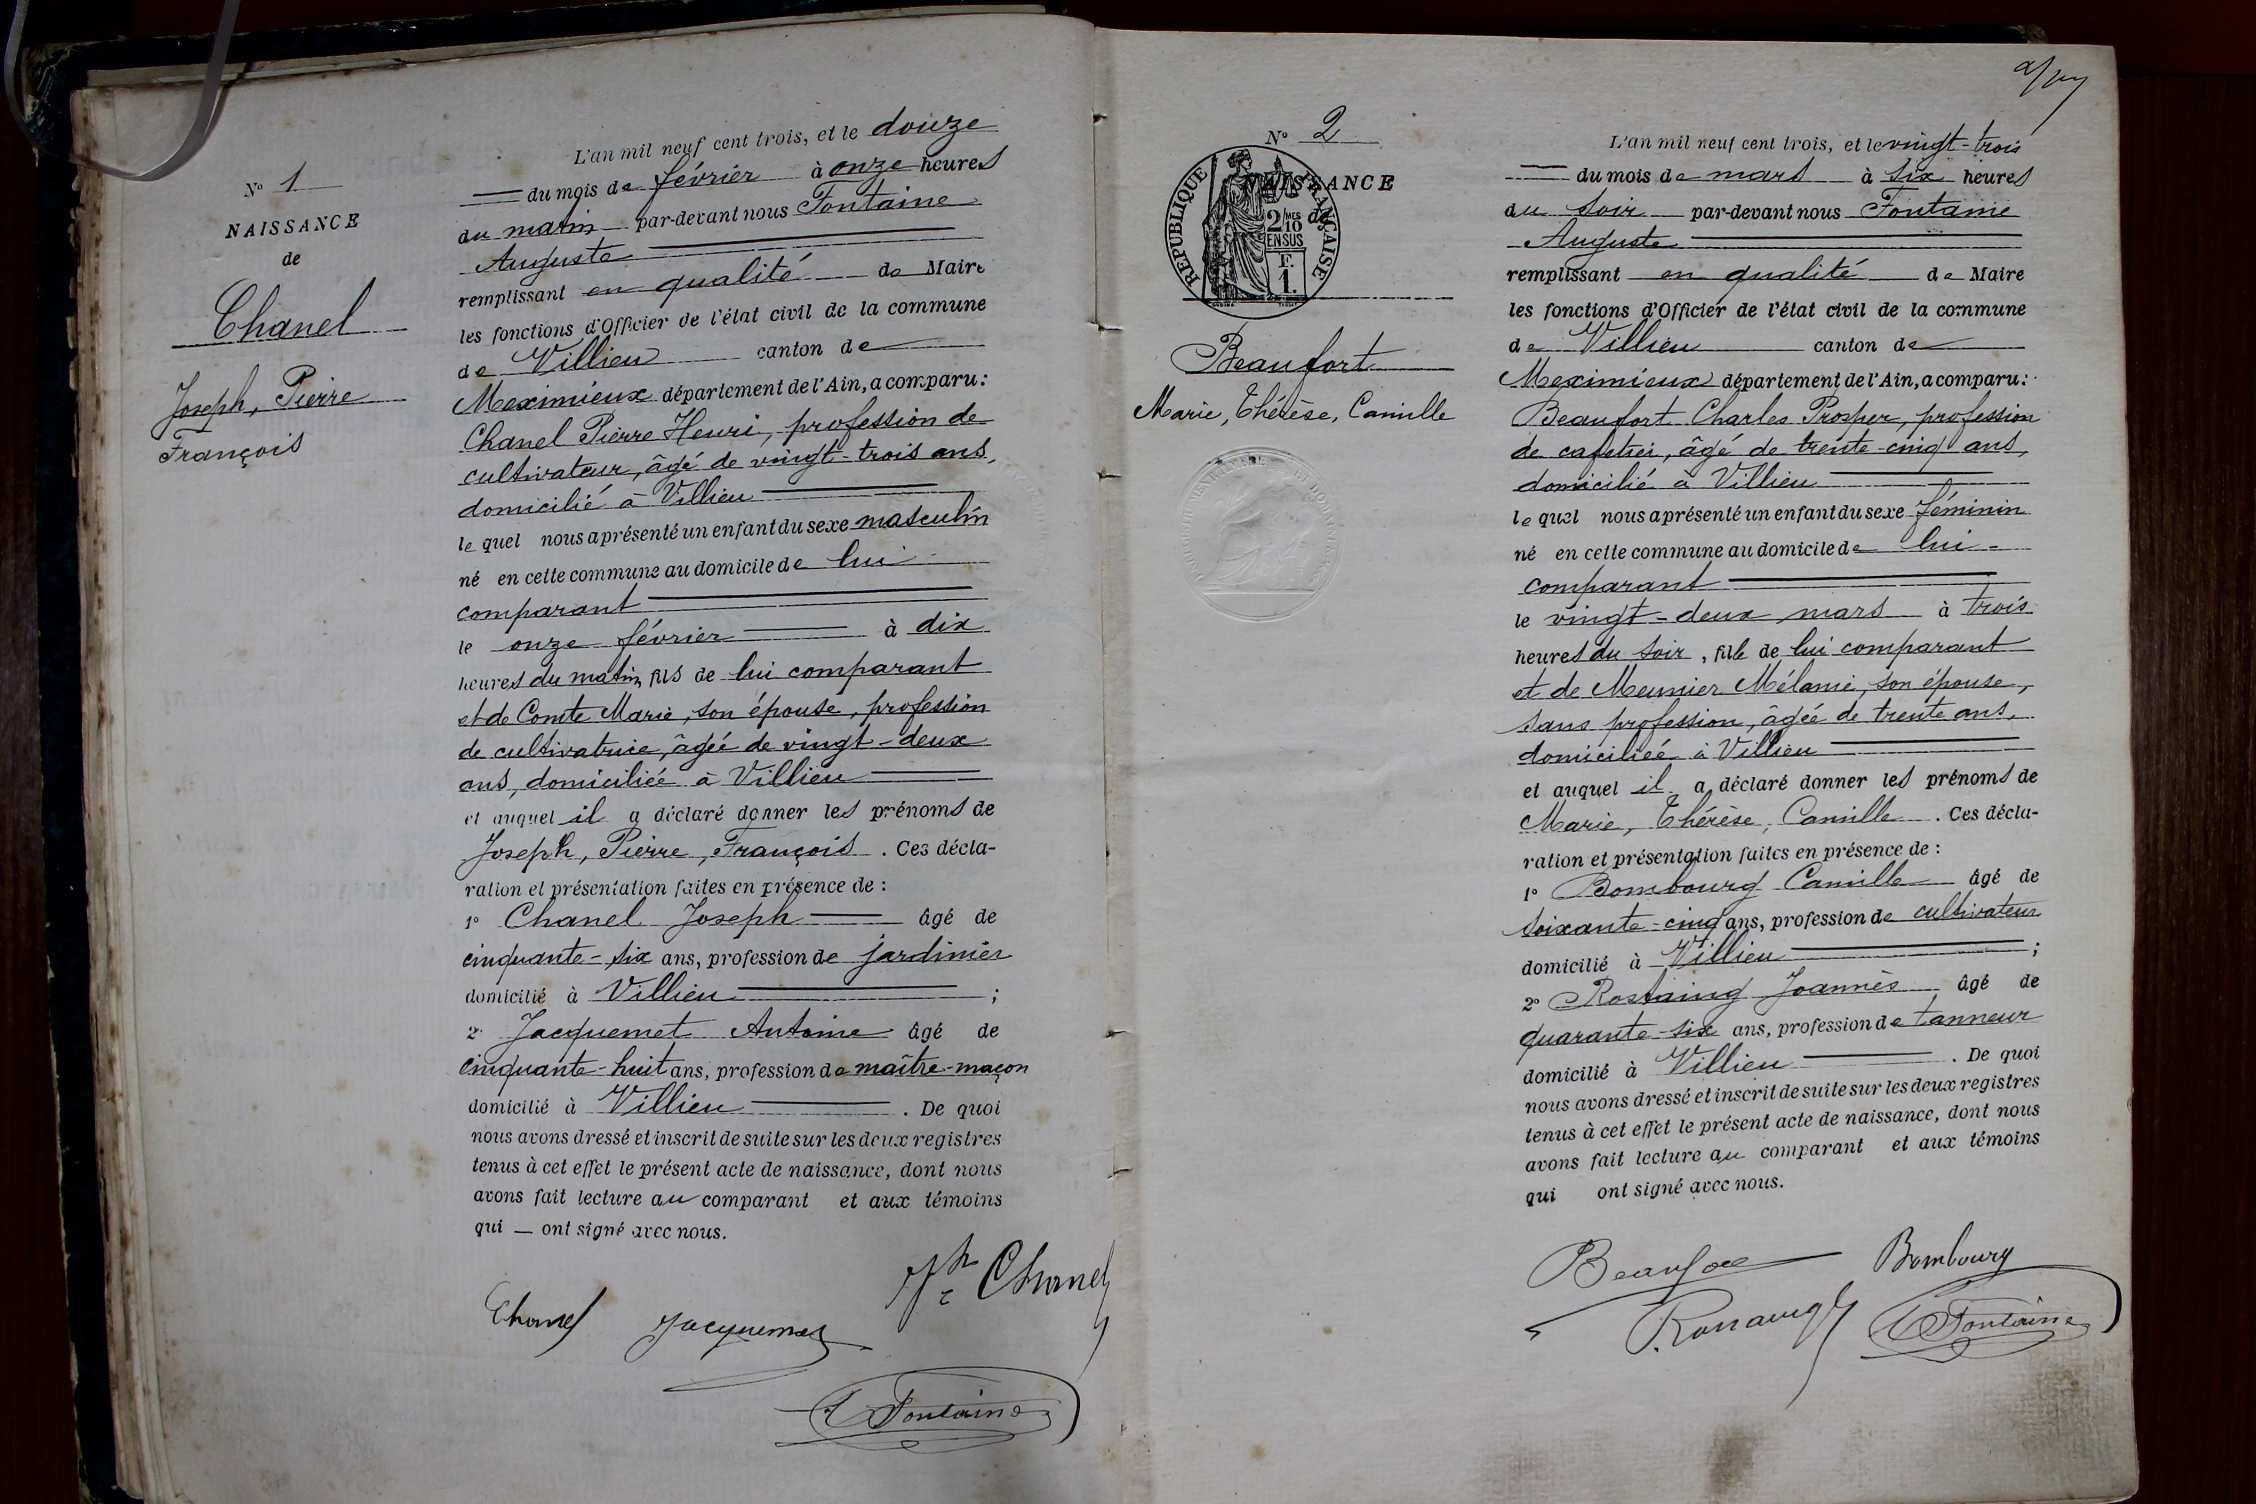 N° 1
NAISSANCE
de
Chanel
Joseph, Pierre
François
L'an mil neuf cent trois, et le douze
du mois de février à onze heures
du matin par-devant nous Fontaine
Auguste
remplissant en qualité de Maire
les fonctions d'Officier de l'état civil de la commune
de Villieu canton de
Meximieux département de l'Ain, a comparu:
Chanel Pierre Henri, profession de
cultivateur, âgé de vingt-trois ans,
domicilié à Villieu
le quel nous a présenté un enfant du sexe masculin
né en cette commune au domicile de lui
comparant
le onze février à dix
heures du matin, fils de lui comparant
et de Comte Marie, son épouse, profession
de cultivatrice, âgée de vingt-deux
ans, domiciliée à Villieu
et auquel il a déclaré donner les prénoms de
Joseph, Pierre, François. Ces décla-
ration et présentation faites en présence de :
1° Chanel Joseph âgé de
cinquante-six ans, profession de jardinier
domicilié à Villieu ;
2° Jacquemet Antoine âgé de
cinquante-huit ans, profession de maître-maçon
domicilié à Villieu . De quoi
nous avons dressé et inscrit de suite sur les deux registres
tenus à cet effet le présent acte de naissance, dont nous
avons fait lecture au comparant et aux témoins
qui — ont signé avec nous.
Jh Chanel
Chanel Jacquemet
Fontaine
N° 2
NAISSANCE
de
REPUBLIQUE FRANÇAISE
2/10 MES
EN SUS
F.
1.
Beaufort
Marie, Thérèse, Camille
L'an mil neuf cent trois, et le vingt-trois
du mois de mars à six heures
du soir par-devant nous Fontaine
Auguste
remplissant en qualité de Maire
les fonctions d'Officier de l'état civil de la commune
de Villieu canton de
Meximieux département de l'Ain, a comparu:
Beaufort Charles Prosper, profession
de cafetier, âgé de trente-cinq ans,
domicilié à Villieu
le quel nous a présenté un enfant du sexe féminin
né en cette commune au domicile de lui
comparant
le vingt-deux mars à trois
heures du soir, fille de lui comparant
et de Meunier Mélanie, son épouse,
sans profession, âgée de trente ans,
domiciliée à Villieu
et auquel il a déclaré donner les prénoms de
Marie, Thérèse, Camille . Ces décla-
ration et présentation faites en présence de :
1° Bombourg Camille âgé de
soixante-cinq ans, profession de cultivateur
domicilié à Villieu ;
2° Rostaing Joannès âgé de
quarante-six ans, profession de tanneur
domicilié à Villieu . De quoi
nous avons dressé et inscrit de suite sur les deux registres
tenus à cet effet le présent acte de naissance, dont nous
avons fait lecture au comparant et aux témoins
qui ont signé avec nous.
Bombourg
Fontaine